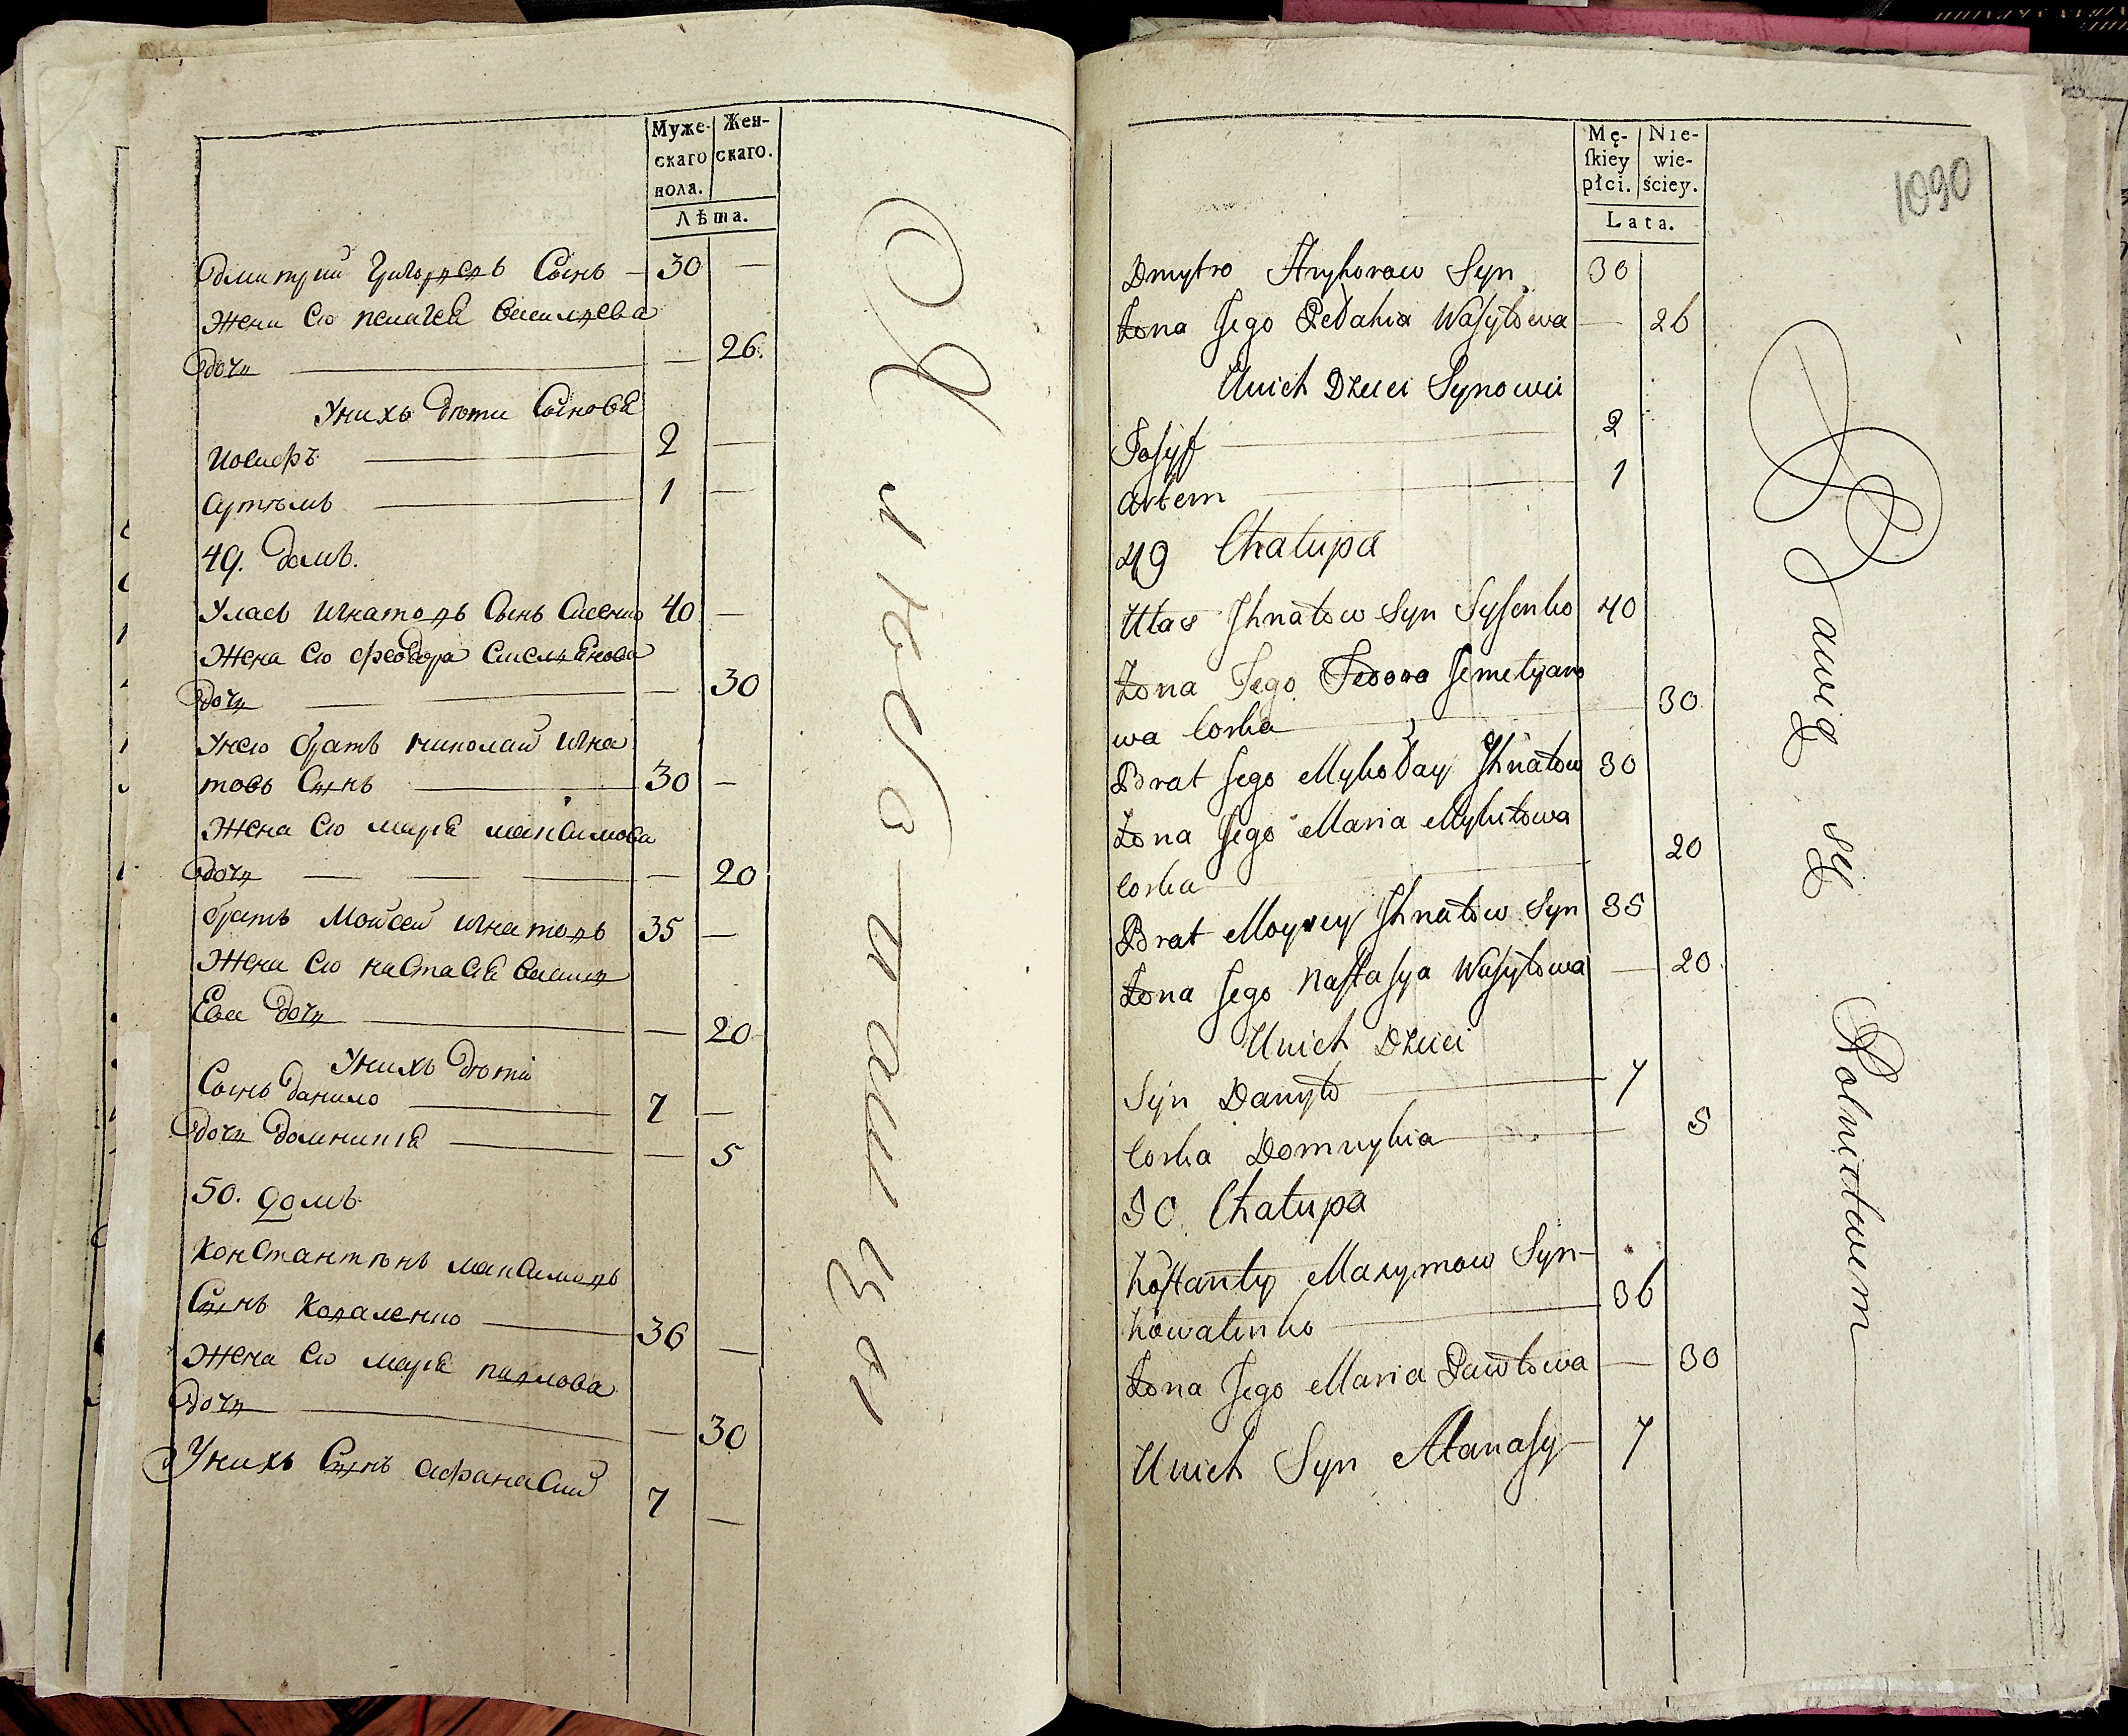 Муже-
скаго
пола.
Жен-
скаго.
Лѣта.
Дмитрий Григоревъ Сынъ — 30 —
Жена Его Пелагея Василева
дочь — 26.
У нихъ дети Сыновя
Иосифъ — 2 —
Артемъ — 1 —
49. домъ.
Уласъ Игнатовъ Сынъ Сисенко 40 —
Жена Его Феодора Емелянова
дочь — 30
У него братъ Николай Игна
товъ Сынъ — 30 —
Жена Его Маря Максимова
дочь — 20
братъ Мойсей Игнатовъ 35 —
Жена Его Настася Васил
Ева дочь — 20
У нихъ дети
Сынъ данило — 7 —
дочь домникия — 5
50. домъ.
Константинъ Максимовъ
Сынъ Коваленко — 36 —
Жена Его Маря Павлова
дочь — 30
У нихъ Сынъ Афанасий 7 —
Mę-
ſkiey
płci.
Nie-
wie-
ściey.
Lata.
1090
Dmytro Hryhorow Syn 30
Żona Jego Pełahia Wasyłowa — 26
U nich Dzieci Synowie
Josyf — 2
Artem — 1
49 Chałupa
Ułas Jhnatow Syn Sysenko 40
Żona Jego Fedora Jemelyano
wa Corka — 30
Brat Jego Mykołay Jhnatow 30
Żona Jego Maria Mykitowa
Corka 20
Brat Moysey Jhnatow Syn 35
Żona Jego Nastasya Wasyłowa — 20
U nich Dzieci
Syn Danyło — 7
Corka Domnykia — 5
50. Chałupa
Kostanty Maxymow Syn
Kowalenko — 36
Żona Jego Maria Pawłowa — 30
U nich Syn Atanasy 7
Bawią się Rolnictwem